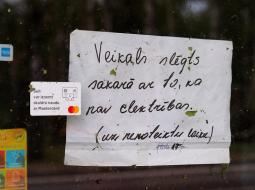 Veikals slēgts
sakarā ar to, ka
nav elektrības.
(uz nenoteiktu laiku)
var izņemt
skaidru naudu
ar Mastercard